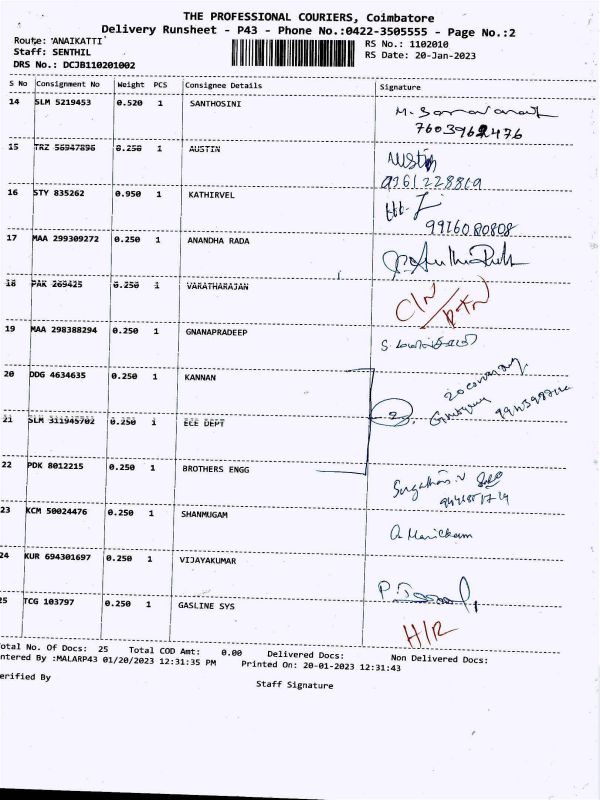 THE PROFESSIONAL COURIERS, Coimbatore
Delivery Runsheet - P43 - Phone No.:0422-3505555 - Page No.:2
Route: 'ANAIKATTI'
RS No.: 1102010
Staff: SENTHIL
RS Date: 20-Jan-2023
DRS No.: DCJB110201002
S No Consignment No Weight PCS Consignee Details Signature
14 SLM 5219453 0.520 1 SANTHOSINI
15 TRZ 56947896 0.250 1 AUSTIN
Austin
9961228819
16 STY 835262 0.950 1 KATHIRVEL
9976080808
17 MAA 299309272 0.250 1 ANANDHA RADA
18 PAK 269425 0.250 1 VARATHARAJAN
19 MAA 298388294 0.250 1 GNANAPRADEEP
20 DDG 4634635 0.250 1 KANNAN
2
21 SLM 311945702 0.250 1 ECE DEPT
22 PDK 8012215 0.250 1 BROTHERS ENGG
23 KCM 50024476 0.250 1 SHANMUGAM
24 KUR 694301697 0.250 1 VIJAYAKUMAR
25 TCG 103797 0.250 1 GASLINE SYS
H/R
Total No. Of Docs: 25 Total COD Amt: 0.00 Delivered Docs: Non Delivered Docs:
ntered By :MALARP43 01/20/2023 12:31:35 PM Printed On: 20-01-2023 12:31:43
erified By
Staff Signature